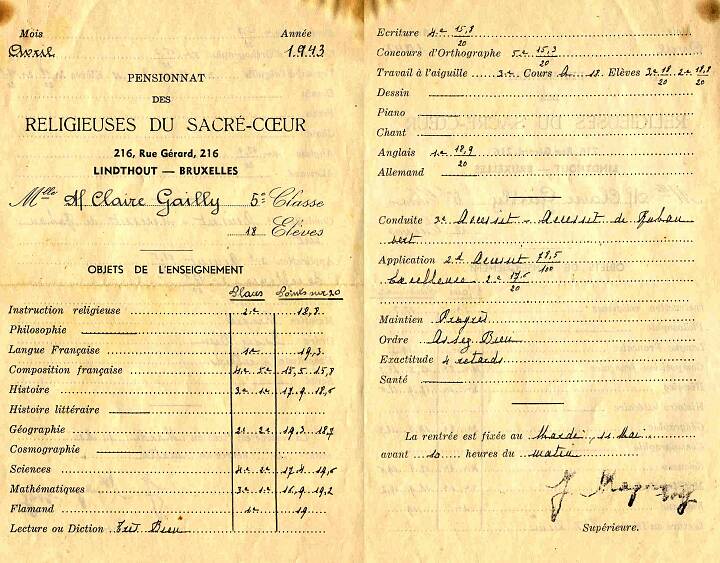 Mois Année
Avril 1943
PENSIONNAT
DES
RELIGIEUSES DU SACRÉ-CŒUR
216, Rue Gérard, 216
LINDTHOUT — BRUXELLES
Mlle M Claire Gailly 5e Classe
18 Elèves
OBJETS DE L'ENSEIGNEMENT
Places Points sur 20
Instruction religieuse 2e 18,8
Philosophie
Langue Française 1e 19,3
Composition française 4e 5e 15,5 15,8
Histoire 3e 1e 17,9 18,6
Histoire littéraire
Géographie 2e 2e 19,3 18,7
Cosmographie
Sciences 4e 2e 17,4 19,6
Mathématiques 3e 1e 16,9 19,2
Flamand 1e 19
Lecture ou Diction Très Bien
Ecriture 4e 15,8/20
Concours d'Orthographe 5e 15,3/20
Travail à l'aiguille 3e Cours A 18 Elèves 3e 18/20 2e 18,8/20
Dessin
Piano
Chant
Anglais 1e 18,9/20
Allemand
Conduite 3e Accessit - Accessit de Ruban
vert
Application 2d Accessit 78,5/100
Excellence 2e 17,6/20
Maintien Progrès
Ordre Assez Bien
Exactitude 4 retards
Santé
La rentrée est fixée au Mardi, 11 Mai
avant 10 heures du matin
J.
Supérieure.